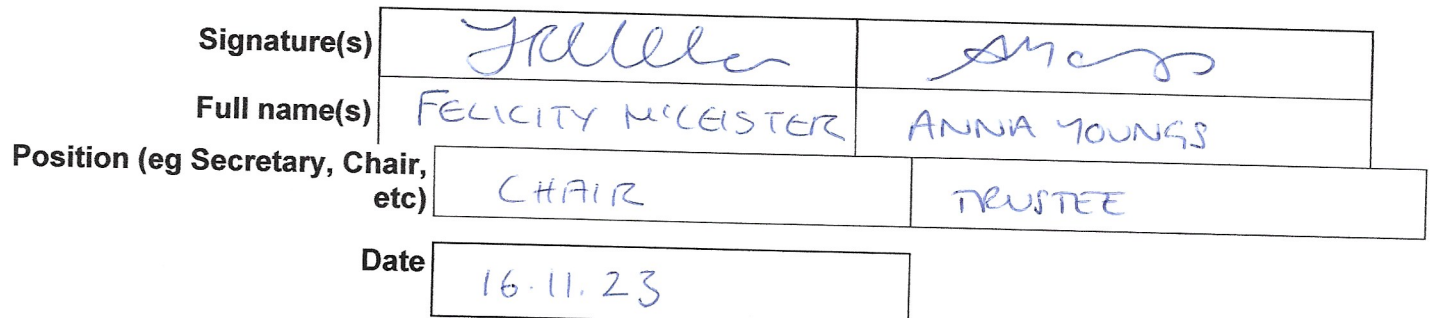 Signature(s)
Full name(s) FELICITY M'CLEISTER ANNA YOUNGS
Position (eg Secretary, Chair,
etc) CHAIR TRUSTEE
Date 16.11.23